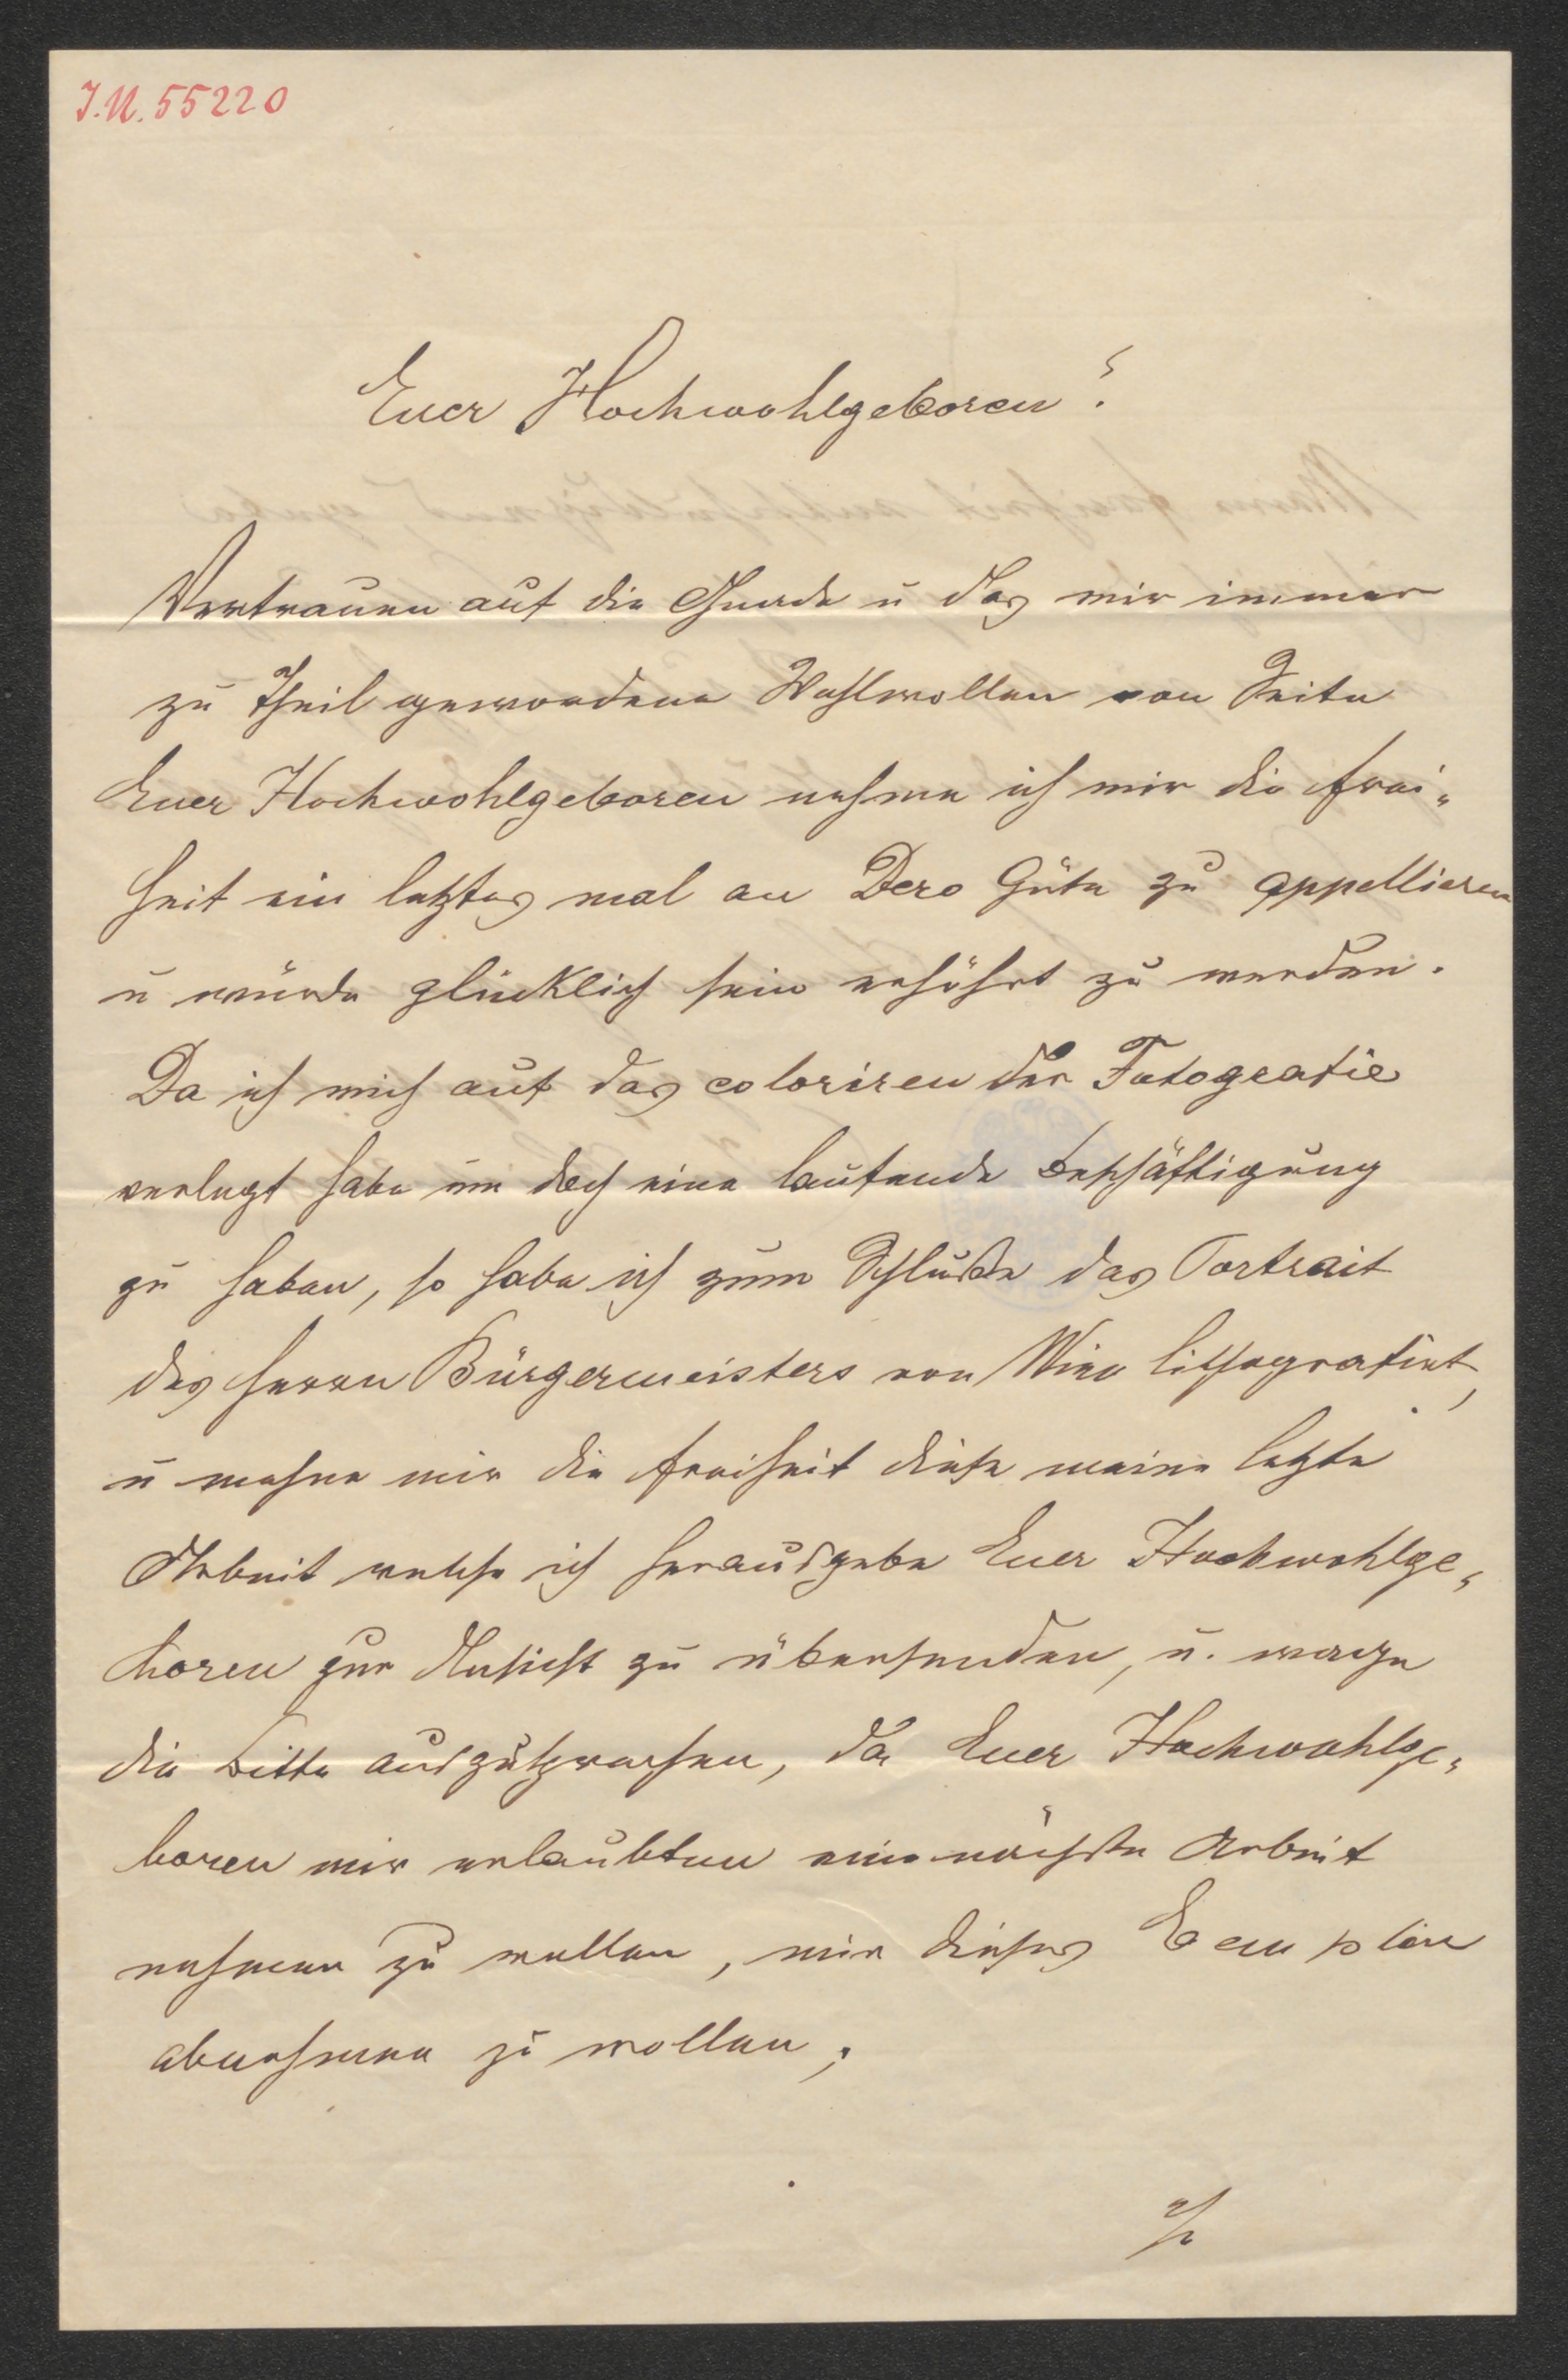 J.N. 55220
Euer Hochwohlgeboren!
Vertrauen auf die Gnade u das mir immer
zu Theil gewordene Wohlwollen von Seite
Euer Hochwohlgeboren nehme ich mir die Frei-
heit ein letztes mal an Dero Güte zu appellieren
u würde glücklich sein erhöhrt zu werden.
Da ich mich auf das coloriren der Fotografie
verlegt habe um doch eine laufende Beschäftigung
zu haben, so habe ich zum Schluße das Portrait
des Herrn Bürgermeisters von Wien lithografirt,
u nehme mir die Freiheit diese meine letzte
Arbeit welche ich herausgebe Euer Hochwohlge-
boren zur Ansicht zu übersenden, u. wage
die Bitte auszusprechen, da Euer Hochwohlge-
boren mir erlaubten eine nächste Arbeit
nehmen zu wollen, mir dieses Exemplar
abnehmen zu wollen,